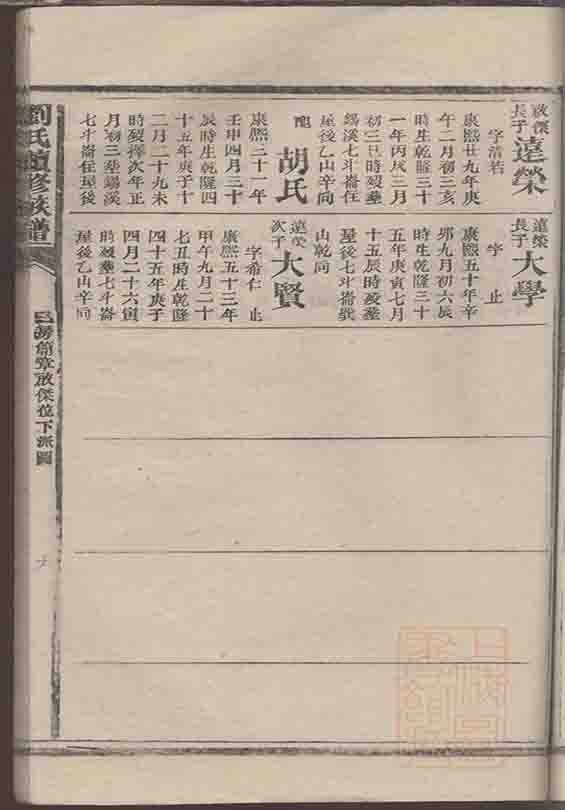 放傑
長子
遠榮
字浩若
康熙廿九年庚
午二月初三亥
時生乾隆三十
一年丙戌三月
初三巳時歿塟
錫溪七斗崙住
屋後乙山辛向
配胡氏
康熙三十一年
壬申四月三十
辰時生乾隆四
十五年庚子十
二月二十九未
時歿擇次年正
月初三塟錫溪
七斗崙住屋後
遠榮
長子
大學
字 止
康熙五十年辛
卯九月初六辰
時生乾隆三十
五年庚寅七月
十五辰時歿塟
屋後七斗崙
山乾向
遠榮
次子
大賢
字希仁 止
康熙五十三年
甲午九月二十
七丑時生乾隆
四十五年庚子
四月二十六寅
時歿塟七斗崙
屋後乙山辛向
劉氏續修族譜
房簡章放傑位下派圖